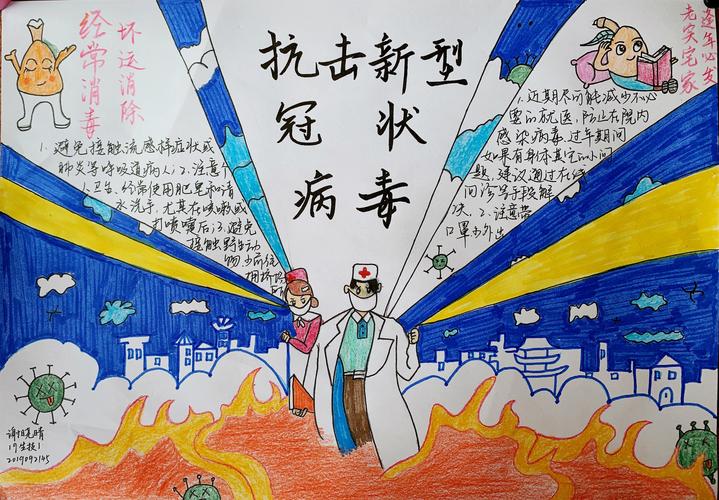 抗击新型
冠状
病毒
经常消毒
坏运消除
1、避免接触流感样症状或
肺炎等呼吸道病人；2、注意个
人卫生、经常使用肥皂和清
水洗手，尤其在咳嗽或
打喷嚏后；3、避免
接触野生动
物
逢年必受
老实宅家
1、近期尽可能减少不必
要的就医，防止在院内
感染病毒，过年期间
如果有身体其它的小问
题，建议通过在线
问诊等手段解
决、2、注意带
口罩少外出
2019092145